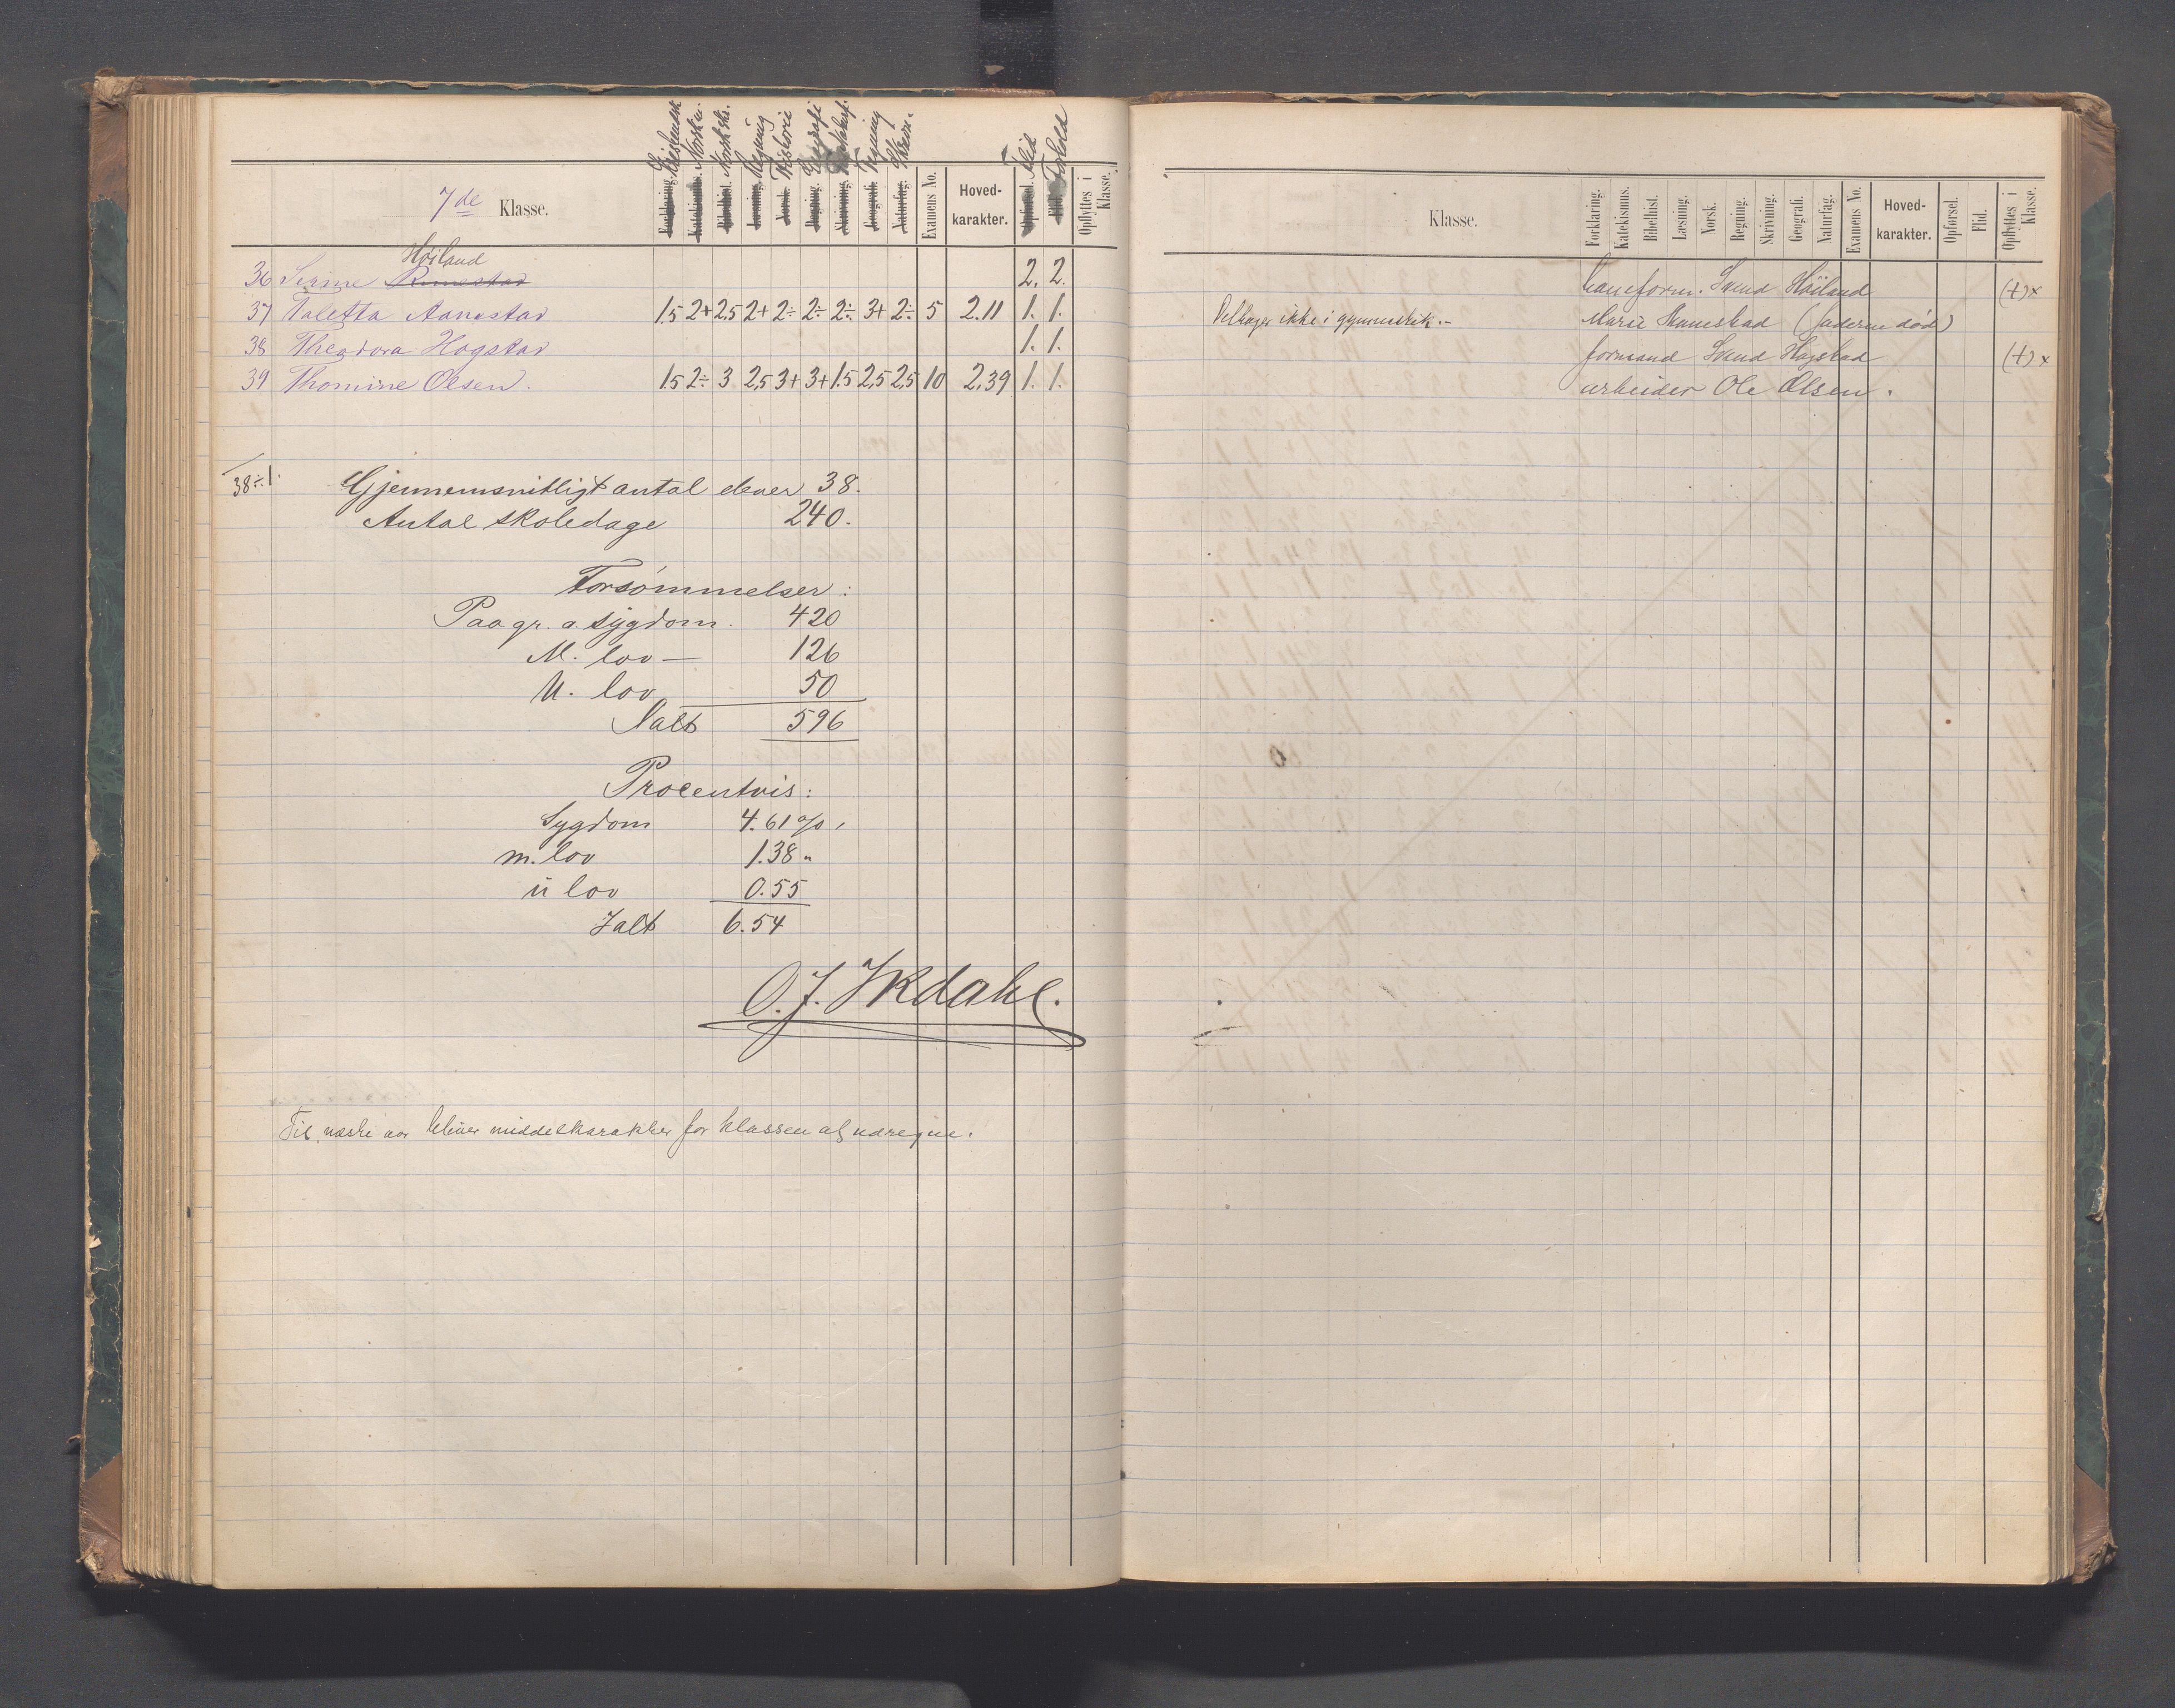 7de Klasse.
Kristendok Norsk m. Norsk skr. Regning Historie Geografi Tegning Skrivn. Flid Forhold
Forklaring. Katekismus. Bibelhist. Læsning. Norsk. Regning. Skrivning. Geografi. Naturfag. Examens No. Hoved-karakter. Opførsel. Flid. Opflyttes i Klasse.
Høiland
36 Serine 2. 2.
37 Valetta Aanestad 1.5 2+ 2.5 2+ 2÷ 2÷ 2÷ 3+ 2÷ 5 2.11 1. 1.
38 Theodora Hogstad 1. 1.
39 Thomine Olsen. 1.5 2÷ 3 2,5 3+ 3+ 1.5 2,5 2,5 10 2,39 1. 1.
38÷1. Gjennemsnitligt antal elever 38.
Antal skoledage 240.
Forsømmelser:
Paa gr. a. sygdom. 420
M. lov — 126
U. lov 50
Ialt 596
Procentvis:
Sygdom 4.61 %
m. lov 1.38 "
u lov 0.55
Ialt 6.54
O. J. Ikdahl.
Til næste aar bliver middelkarakter for klassen at udregne.
Klasse. Forklaring. Katekismus. Bibelhist. Læsning. Norsk. Regning. Skrivning. Geografi. Naturfag. Examens No. Hoved-karakter. Opførsel. Flid. Opflyttes i Klasse.
Svend Høiland (+)x
Deltager ikke i gymnastik.- Marie Aanestad (faderen død)
formand Svend Høgstad (+)x
arbeider Ole Olsen.